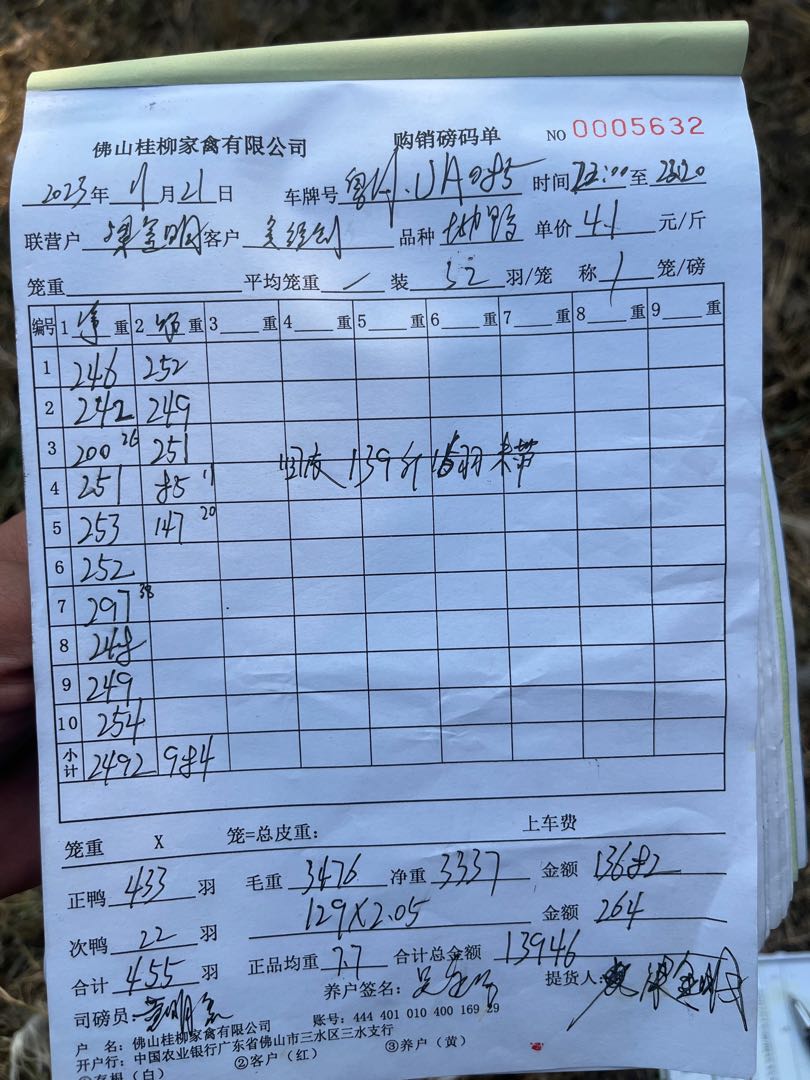 佛山桂柳家禽有限公司 购销磅码单 NO 0005632
2023年11月21日 车牌号 UA 时间 至 23:20
联营户 客户 品种 单价 4.1 元/斤
笼重 平均笼重 装 52 羽/笼 称 1 笼/磅
编号 1 净 重 2 重 3 重 4 重 5 重 6 重 7 重 8 重 9 重
1 246 252
2 242 249
3 200 26 251
4 251 85 11
5 253 147 20
6 252
7 297 38
8 248
9 249
10 254
小计 2492 984
139斤 羽 未带
笼重 X 笼=总皮重: 上车费
正鸭 433 羽 毛重 3476 净重 3337 金额 13682
次鸭 22 羽 129X2.05 金额 264
合计 455 羽 正品均重 7.7 合计总金额 13946
司磅员 养户签名: 提货人:
户 名: 佛山桂柳家禽有限公司 账号: 444 401 010 400 169 29
开户行: 中国农业银行广东省佛山市三水区三水支行
①存根(白) ②客户(红) ③养户(黄)